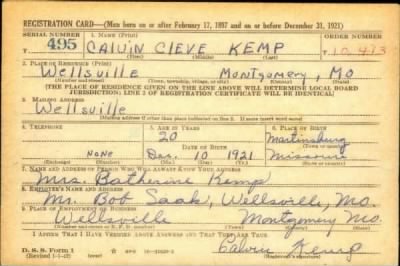 REGISTRATION CARD—(Men born on or after February 17, 1897 and on or before December 31, 1921)
SERIAL NUMBER 1. NAME (Print) ORDER NUMBER
T 495 CALVIN CLEVE KEMP T 10,473
(First) (Middle) (Last)
2. PLACE OF RESIDENCE (Print)
Wellsville Montgomery, Mo
(Number and street) (Town, township, village, or city) (County) (State)
[THE PLACE OF RESIDENCE GIVEN ON THE LINE ABOVE WILL DETERMINE LOCAL BOARD
JURISDICTION; LINE 2 OF REGISTRATION CERTIFICATE WILL BE IDENTICAL]
3. MAILING ADDRESS
Wellsville
[Mailing address if other than place indicated on line 2. If same insert word same]
4. TELEPHONE 5. AGE IN YEARS 6. PLACE OF BIRTH
20 Martinsburg
DATE OF BIRTH (Town or county)
none Dec. 10 1921 Missouri
(Exchange) (Number) (Mo.) (Day) (Yr.) (State or country)
7. NAME AND ADDRESS OF PERSON WHO WILL ALWAYS KNOW YOUR ADDRESS
Mrs. Catherine Kemp
8. EMPLOYER'S NAME AND ADDRESS
Mr. Bob Saak, Wellsville, Mo.
9. PLACE OF EMPLOYMENT OR BUSINESS
Wellsville Montgomery Mo.
(Number and street or R. F. D. number) (Town) (County) (State)
I AFFIRM THAT I HAVE VERIFIED ABOVE ANSWERS AND THAT THEY ARE TRUE.
D. S. S. Form 1
(Revised 1-1-42) (over) Calvin Kemp
(Registrant's signature)